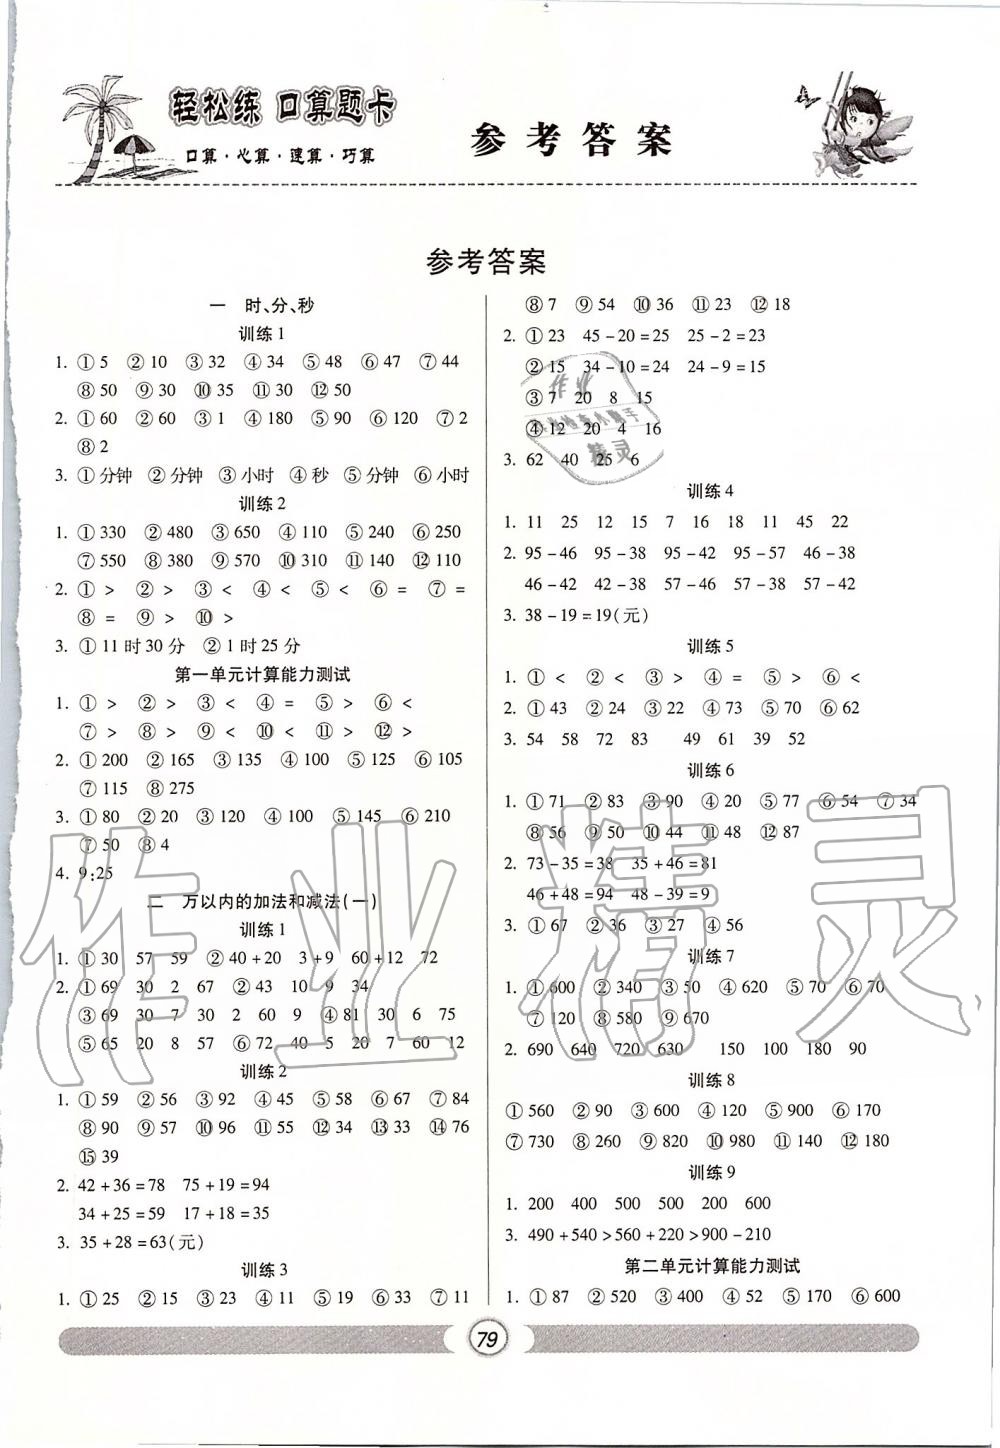 轻松练 口算题卡
口算·心算·速算·巧算
参考答案
参考答案
一 时、分、秒
训练1
1. ①5 ②10 ③32 ④34 ⑤48 ⑥47 ⑦44
⑧50 ⑨30 ⑩35 ⑪30 ⑫50
2. ①60 ②60 ③1 ④180 ⑤90 ⑥120 ⑦2
⑧2
3. ①分钟 ②分钟 ③小时 ④秒 ⑤分钟 ⑥小时
训练2
1. ①330 ②480 ③650 ④110 ⑤240 ⑥250
⑦550 ⑧380 ⑨570 ⑩310 ⑪140 ⑫110
2. ①> ②> ③< ④< ⑤< ⑥= ⑦=
⑧= ⑨> ⑩>
3. ①11时30分 ②1时25分
第一单元计算能力测试
1. ①> ②> ③< ④= ⑤> ⑥<
⑦> ⑧> ⑨< ⑩< ⑪> ⑫>
2. ①200 ②165 ③135 ④100 ⑤125 ⑥105
⑦115 ⑧275
3. ①80 ②20 ③120 ④100 ⑤145 ⑥210
⑦50 ⑧4
4. 9:25
二 万以内的加法和减法(一)
训练1
1. ①30 57 59 ②40+20 3+9 60+12 72
2. ①69 30 2 67 ②43 10 9 34
③69 30 7 30 2 60 9 ④81 30 6 75
⑤65 20 8 57 ⑥72 40 5 20 7 60 12
训练2
1. ①59 ②56 ③92 ④45 ⑤58 ⑥67 ⑦84
⑧90 ⑨57 ⑩96 ⑪55 ⑫34 ⑬33 ⑭76
⑮39
2. 42+36=78 75+19=94
34+25=59 17+18=35
3. 35+28=63(元)
训练3
1. ①25 ②15 ③23 ④11 ⑤19 ⑥33 ⑦11
⑧7 ⑨54 ⑩36 ⑪23 ⑫18
2. ①23 45-20=25 25-2=23
②15 34-10=24 24-9=15
③7 20 8 15
④12 20 4 16
3. 62 40 25 6
训练4
1. 11 25 12 15 7 16 18 11 45 22
2. 95-46 95-38 95-42 95-57 46-38
46-42 42-38 57-46 57-38 57-42
3. 38-19=19(元)
训练5
1. ①< ②< ③> ④= ⑤> ⑥<
2. ①43 ②24 ③22 ④73 ⑤70 ⑥62
3. 54 58 72 83 49 61 39 52
训练6
1. ①71 ②83 ③90 ④20 ⑤77 ⑥54 ⑦34
⑧56 ⑨50 ⑩44 ⑪48 ⑫87
2. 73-35=38 35+46=81
46+48=94 48-39=9
3. ①67 ②36 ③27 ④56
训练7
1. ①600 ②340 ③50 ④620 ⑤70 ⑥70
⑦120 ⑧580 ⑨670
2. 690 640 720 630 150 100 180 90
训练8
①560 ②90 ③600 ④120 ⑤900 ⑥170
⑦730 ⑧260 ⑨820 ⑩980 ⑪140 ⑫180
训练9
1. 200 400 500 500 200 600
3. 490+540>560+220>900-210
第二单元计算能力测试
1. ①87 ②520 ③400 ④52 ⑤170 ⑥600
79
作业精灵
作业
精灵